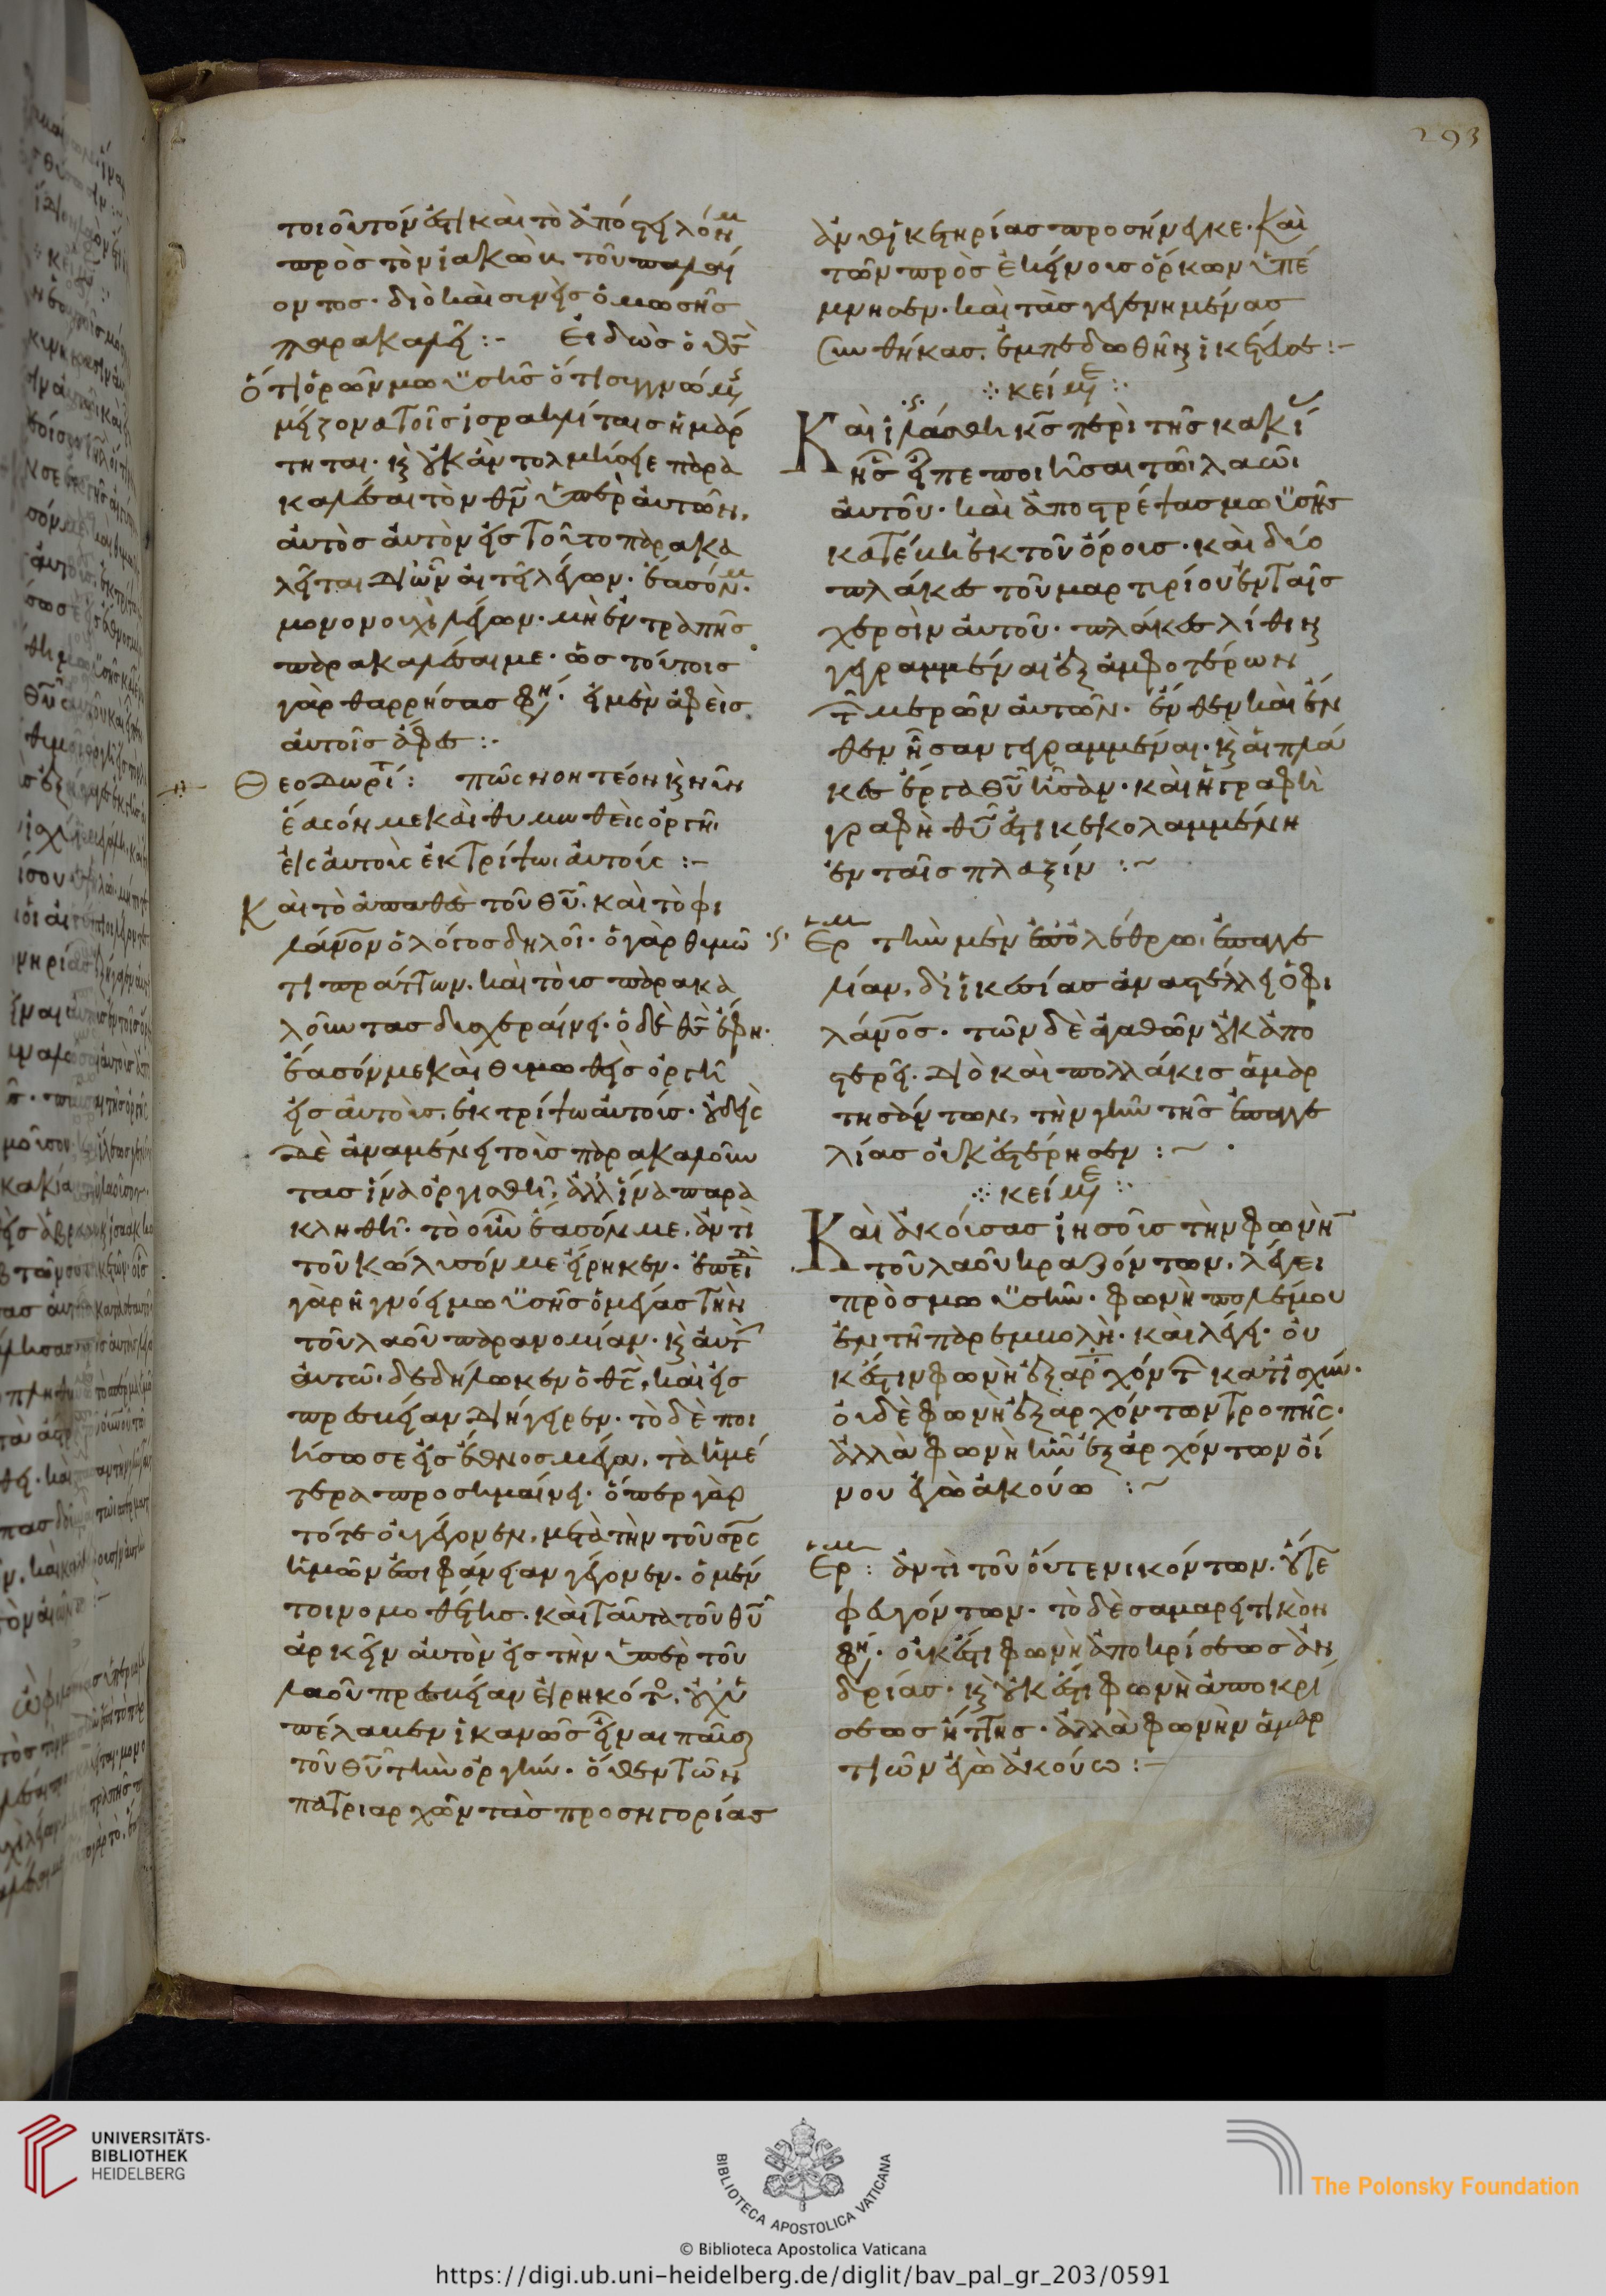 293
τοιοῦτόν ἐστι καὶ τὸ ἀπόστειλόν μ
πρὸς τὸν ἰακὼβ τοῦ παλαί
οντος· διὸ καὶ συνεὶς ὁ μωσῆς
παρακαλεῖ :- Εἰδὼς ὁ θς
ὅτι ὁρῶν μωϋσῆς ὅτι συγγνώμης
μείζονα τοῖς ἰσραηλίταις ἡμάρ
τηται· κ οὐκ ἂν τολμήσειε παρα
καλέσαι τὸν θν ὑπὲρ αὐτῶν,
αὐτὸς αὐτὸν εἰς τοῦτο παρακα
λεῖται διῶν αἰτεῖ λέγων· ἔασόν μ·
μονονουχὶ λέγων· μὴ ἐντραπῆς
παρακαλέσαι με· ὡς τούτοις
γὰρ θαρρήσας φη· εἰ μὲν ἀφεὶς
αὐτοῖς ἄφες :-
Θεοδωρί: πῶς νοητέον κ νῦν
ἔασόν με καὶ θυμωθεὶς ὀργῆι
εἰς αὐτοὺς ἐκτρίψω αὐτούς :-
Καὶ τὸ ἀπαθὲς τοῦ θυ· καὶ τὸ φι
λάνον ὁ λόγος δηλοῖ· ὁ γὰρ θυμῶ
τι πράττων, καὶ τοὺς παρακα
λοῦντας δυσχεραίνει· ὁ δὲ θς ἔφη·
ἔασόν με καὶ θυμωθεὶς ὀργῆ
εἰς αὐτοὺς, ἐκτρίψω αὐτούς· οὐδεὶς
δὲ ἀναμένει τοὺς παρακαλοῦν
τας ἵνα ὀργισθῆ, ἀλλ' ἵνα παρα
κληθῆ· τὸ οὖν ἔασόν με, ἀντὶ
τοῦ κώλυσόν με εἴρηκεν· ἐπειδὴ
γὰρ ἠγνόει μωϋσῆς ὁ μέγας τὴν
τοῦ λαοῦ παρανομίαν· κ αὐτ
αὐτῶ· δεδήλωκεν ὁ θς, καὶ εἰς
πρεσβείαν διήγειρεν· τὸ δὲ ποι
ήσω σε εἰς ἔθνος μέγα, τὰ ἡμέ
τερα προσημαίνει· ὅπερ γὰρ
τότε οὐ γέγονεν, μετὰ τὴν τοῦ σρς
ἡμῶν ἐπιφάνειαν γέγονεν· ὁ μέν
τοι νομοθέτης· καὶ ταῦτα τοῦ θυ
ἀρκεῖν αὐτὸν εἰς τὴν ὑπὲρ τοῦ
λαοῦ πρεσβείαν εἰρηκότο, οὐχ ὑ
πέλαβεν ἱκανῶς εἶναι παῦσαι
τοῦ θυ τὴν ὀργήν· ὅθεν τῶν
πατριαρχῶν τὰς προσηγορίας
ἀνθ ἱκετηρίας προσήνεγκε· καὶ
τῶν πρὸς ἐκείνους ὅρκων ὑπέ
μνησεν· καὶ τὰς γεγενημένας
συνθήκας, ἐμπεδωθῆναι ἱκέτευσε :-
κείμε
Καὶ ἱλάσθη κς περὶ τῆς κακί
ης εἶπε ποιῆσαι τῶι λαῶι
αὐτοῦ· καὶ ἀποστρέψας μωϋσῆς
κατέβη ἐκ τοῦ ὄρους· καὶ δύο
πλάκες τοῦ μαρτυρίου ἐν ταῖς
χερσὶν αὐτοῦ· πλάκες λίθιναι
γεγραμμέναι ἐξ ἀμφοτέρων
τ μερῶν αὐτῶν· ἔνθεν καὶ ἔν
θεν ἦσαν γεγραμμέναι· κ αἱ πλά
κες ἔργα θυ ἦσαν· καὶ ἡ γραφὴ
γραφὴ θυ ἐστι κεκολαμμένη
ἐν ταῖς πλαξίν :~
Ερμ τὴν μὲν ἐπ ὀλέθρω, ἐπαγγε
λίαν, δι ἱκεσίας ἀναστέλλει ὁ φι
λάνος· τῶν δὲ ἀγαθῶν οὐκ ἀπο
στερεῖ· διὸ καὶ πολλάκις ἁμαρ
τησάντων, τὴν γῆν τῆς ἐπαγγε
λίας οὐκ ἐστέρησεν :~
κείμε
Καὶ ἀκούσας ἰησοῦς τὴν φωνὴν
τοῦ λαοῦ κραζόντων, λέγει
πρὸς μωϋσῆν· φωνὴ πολέμου
ἐν τῆ παρεμβολῆ· καὶ λέγει· οὐ
κ ἔστιν φωνὴ ἐξαρχόντ κατ ἰσχύν·
οὐδὲ φωνὴ ἐξαρχόντων τροπῆς·
ἀλλὰ φωνὴν ἐξαρχόντων οἴ
νου ἐγὼ ἀκούω :~
Ερμ : ἀντὶ τοῦ οὔτε νικόντων, οὔτε
φευγόντων· τὸ δὲ σαμαρειτικὸν
φη· οὐκ ἔστι φωνὴ ἀποκρίσεως ἀν
δρίας· κ οὐκ ἔστι φωνὴ ἀποκρί
σεως ἥττης· ἀλλὰ φωνὴν ἁμαρ
τιῶν ἐγὼ ἀκούω :-
UNIVERSITÄTS-
BIBLIOTHEK
HEIDELBERG
BIBLIOTECA APOSTOLICA VATICANA
The Polonsky Foundation
© Biblioteca Apostolica Vaticana
https://digi.ub.uni-heidelberg.de/diglit/bav_pal_gr_203/0591